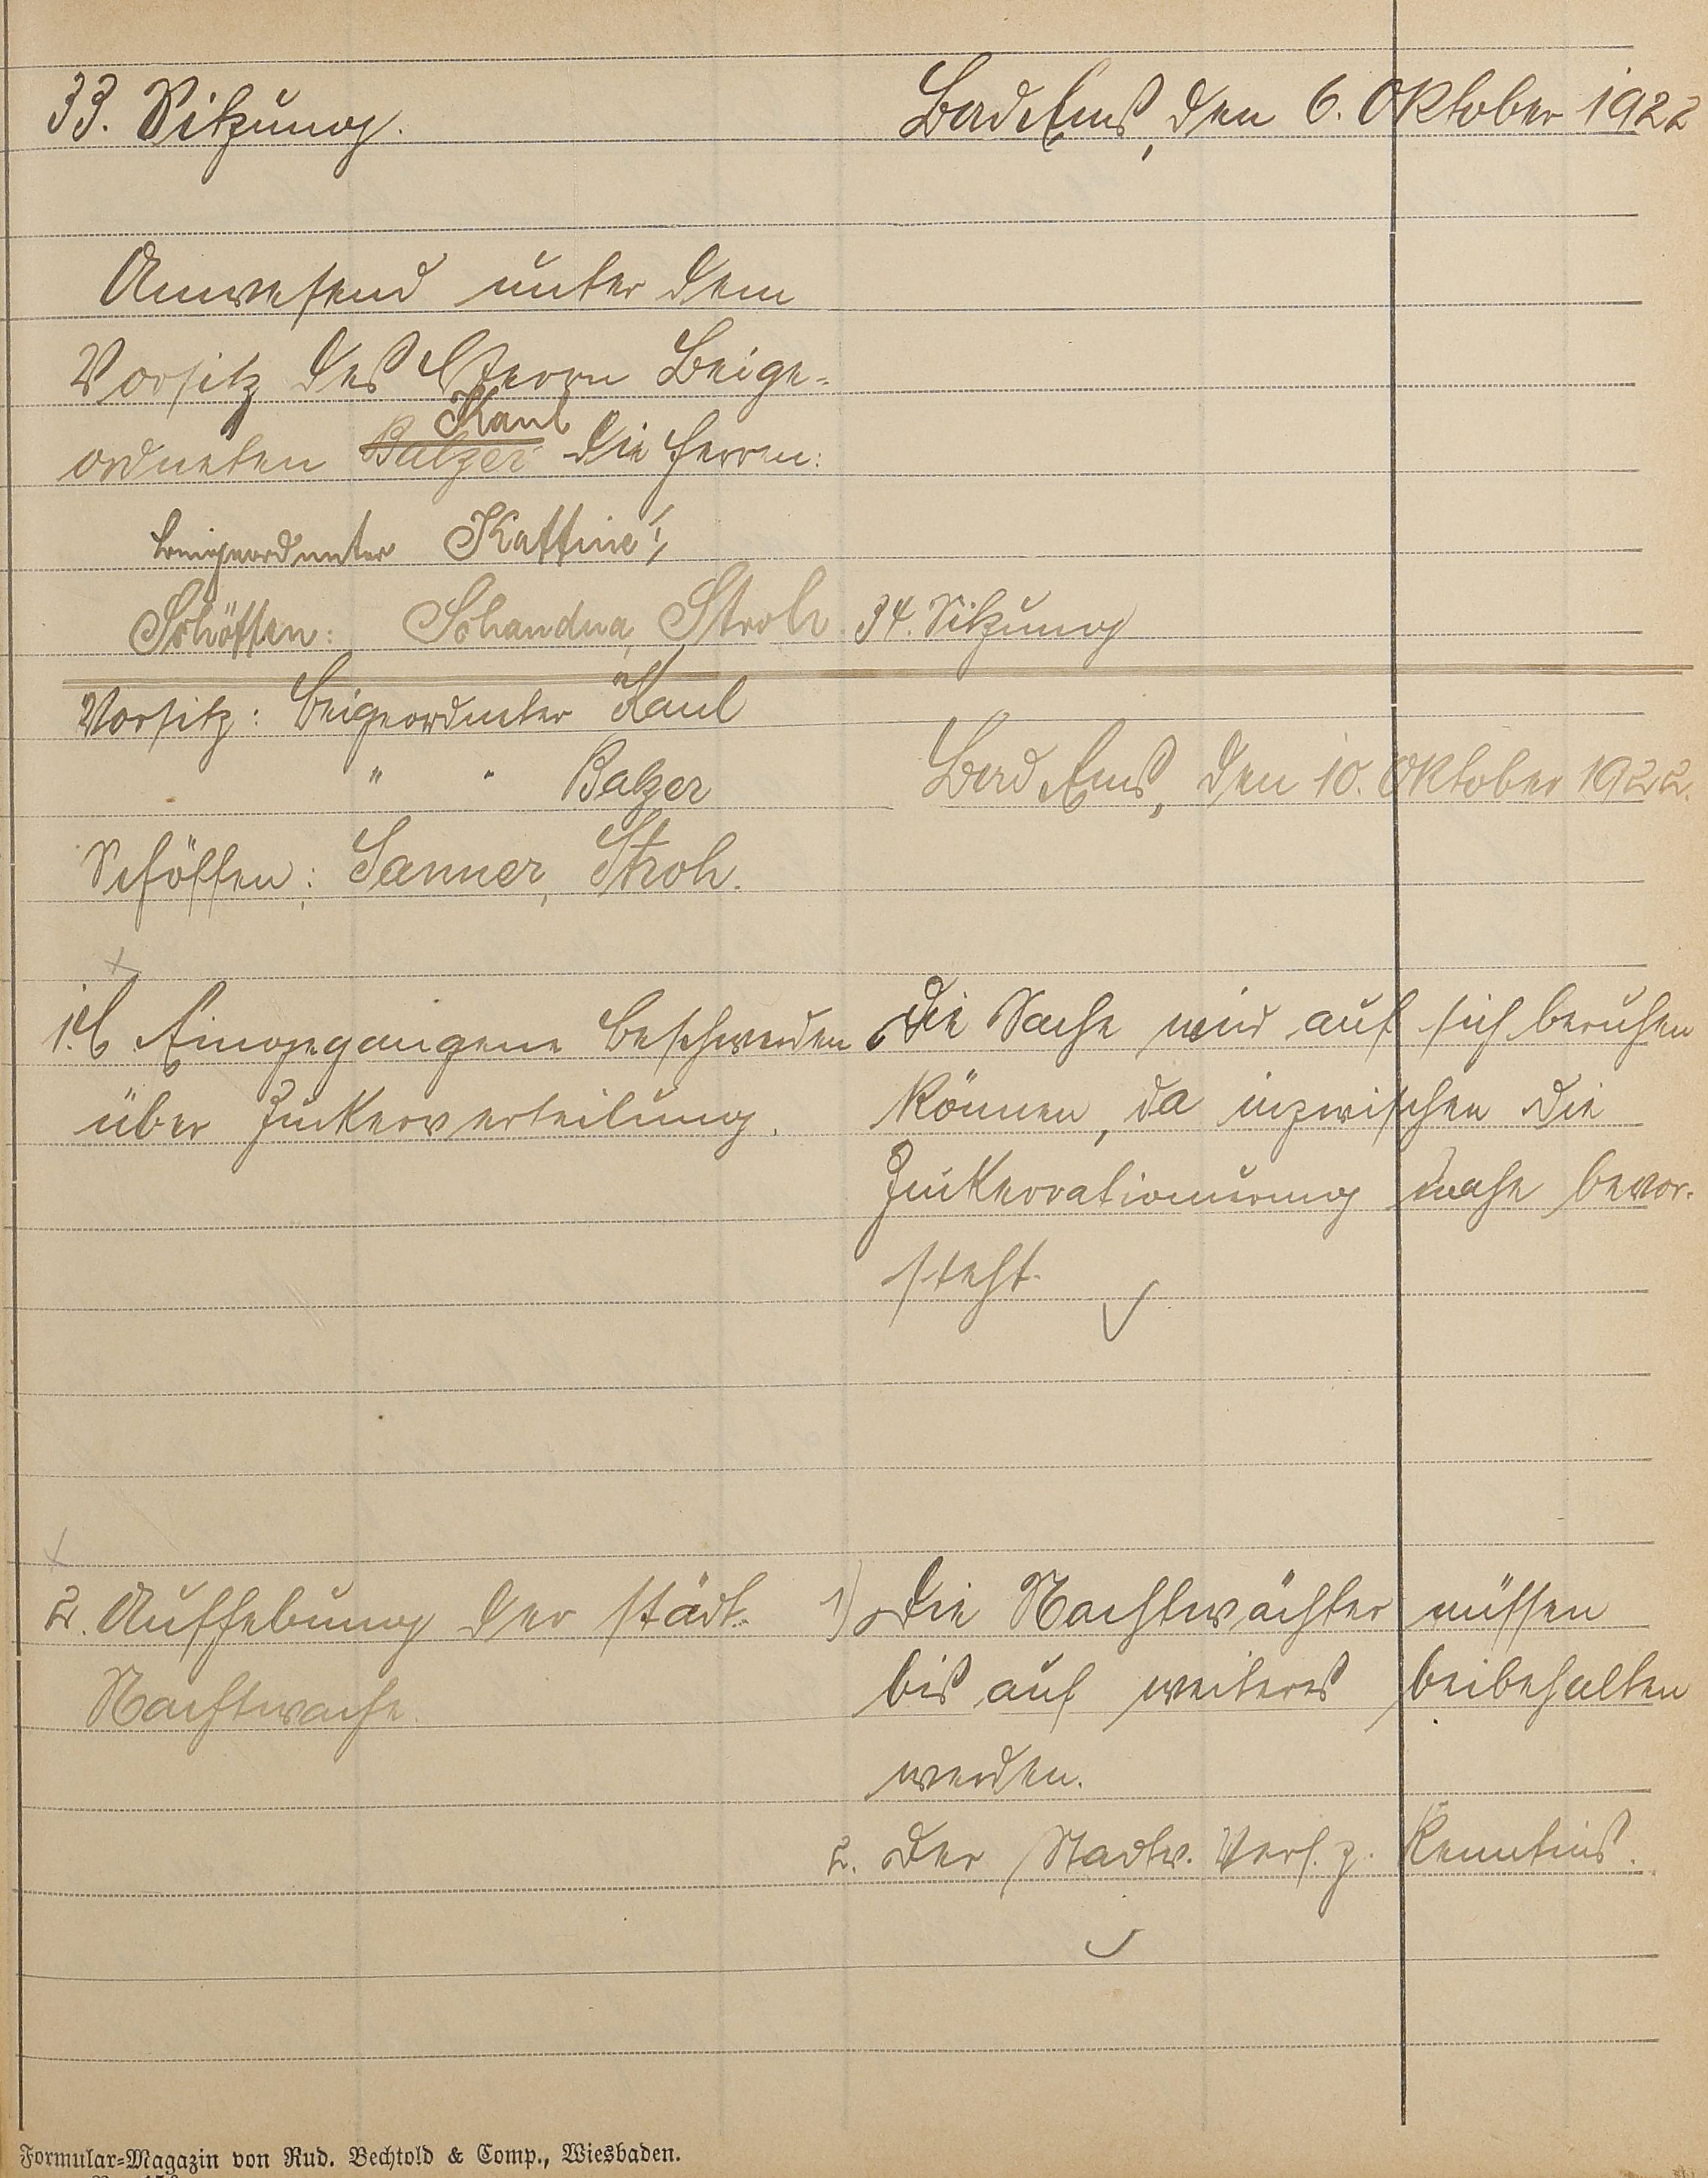 33. Sitzung.
Bad Ems, den 6. Oktober 1922
Anwesend unter dem
Vorsitz des Herrn Beige-
ordneten Balzer Kaul die Herren:
Beigeordneter Kattiné,
Schöffen: Schandua, Stroh
34. Sitzung
Vorsitz: Beigeordneter Kaul
" " Balzer
Bad Ems, den 10. Oktober 1922.
Schöffen: Sanner, Stroh.
1. Eingegangene Beschwerden
über Zuckerverteilung.
Die Sache wird auf sich beruhen
können, da inzwischen die
Zuckerrationierung nahe bevor-
steht.
2. Aufhebung der städt.
Nachtwache.
1) Die Nachtwächter müssen
bis auf weiteres beibehalten
werden.
2. Der Stadtv. Vers. z. Kenntnis.
Formular-Magazin von Rud. Bechtold & Comp., Wiesbaden.